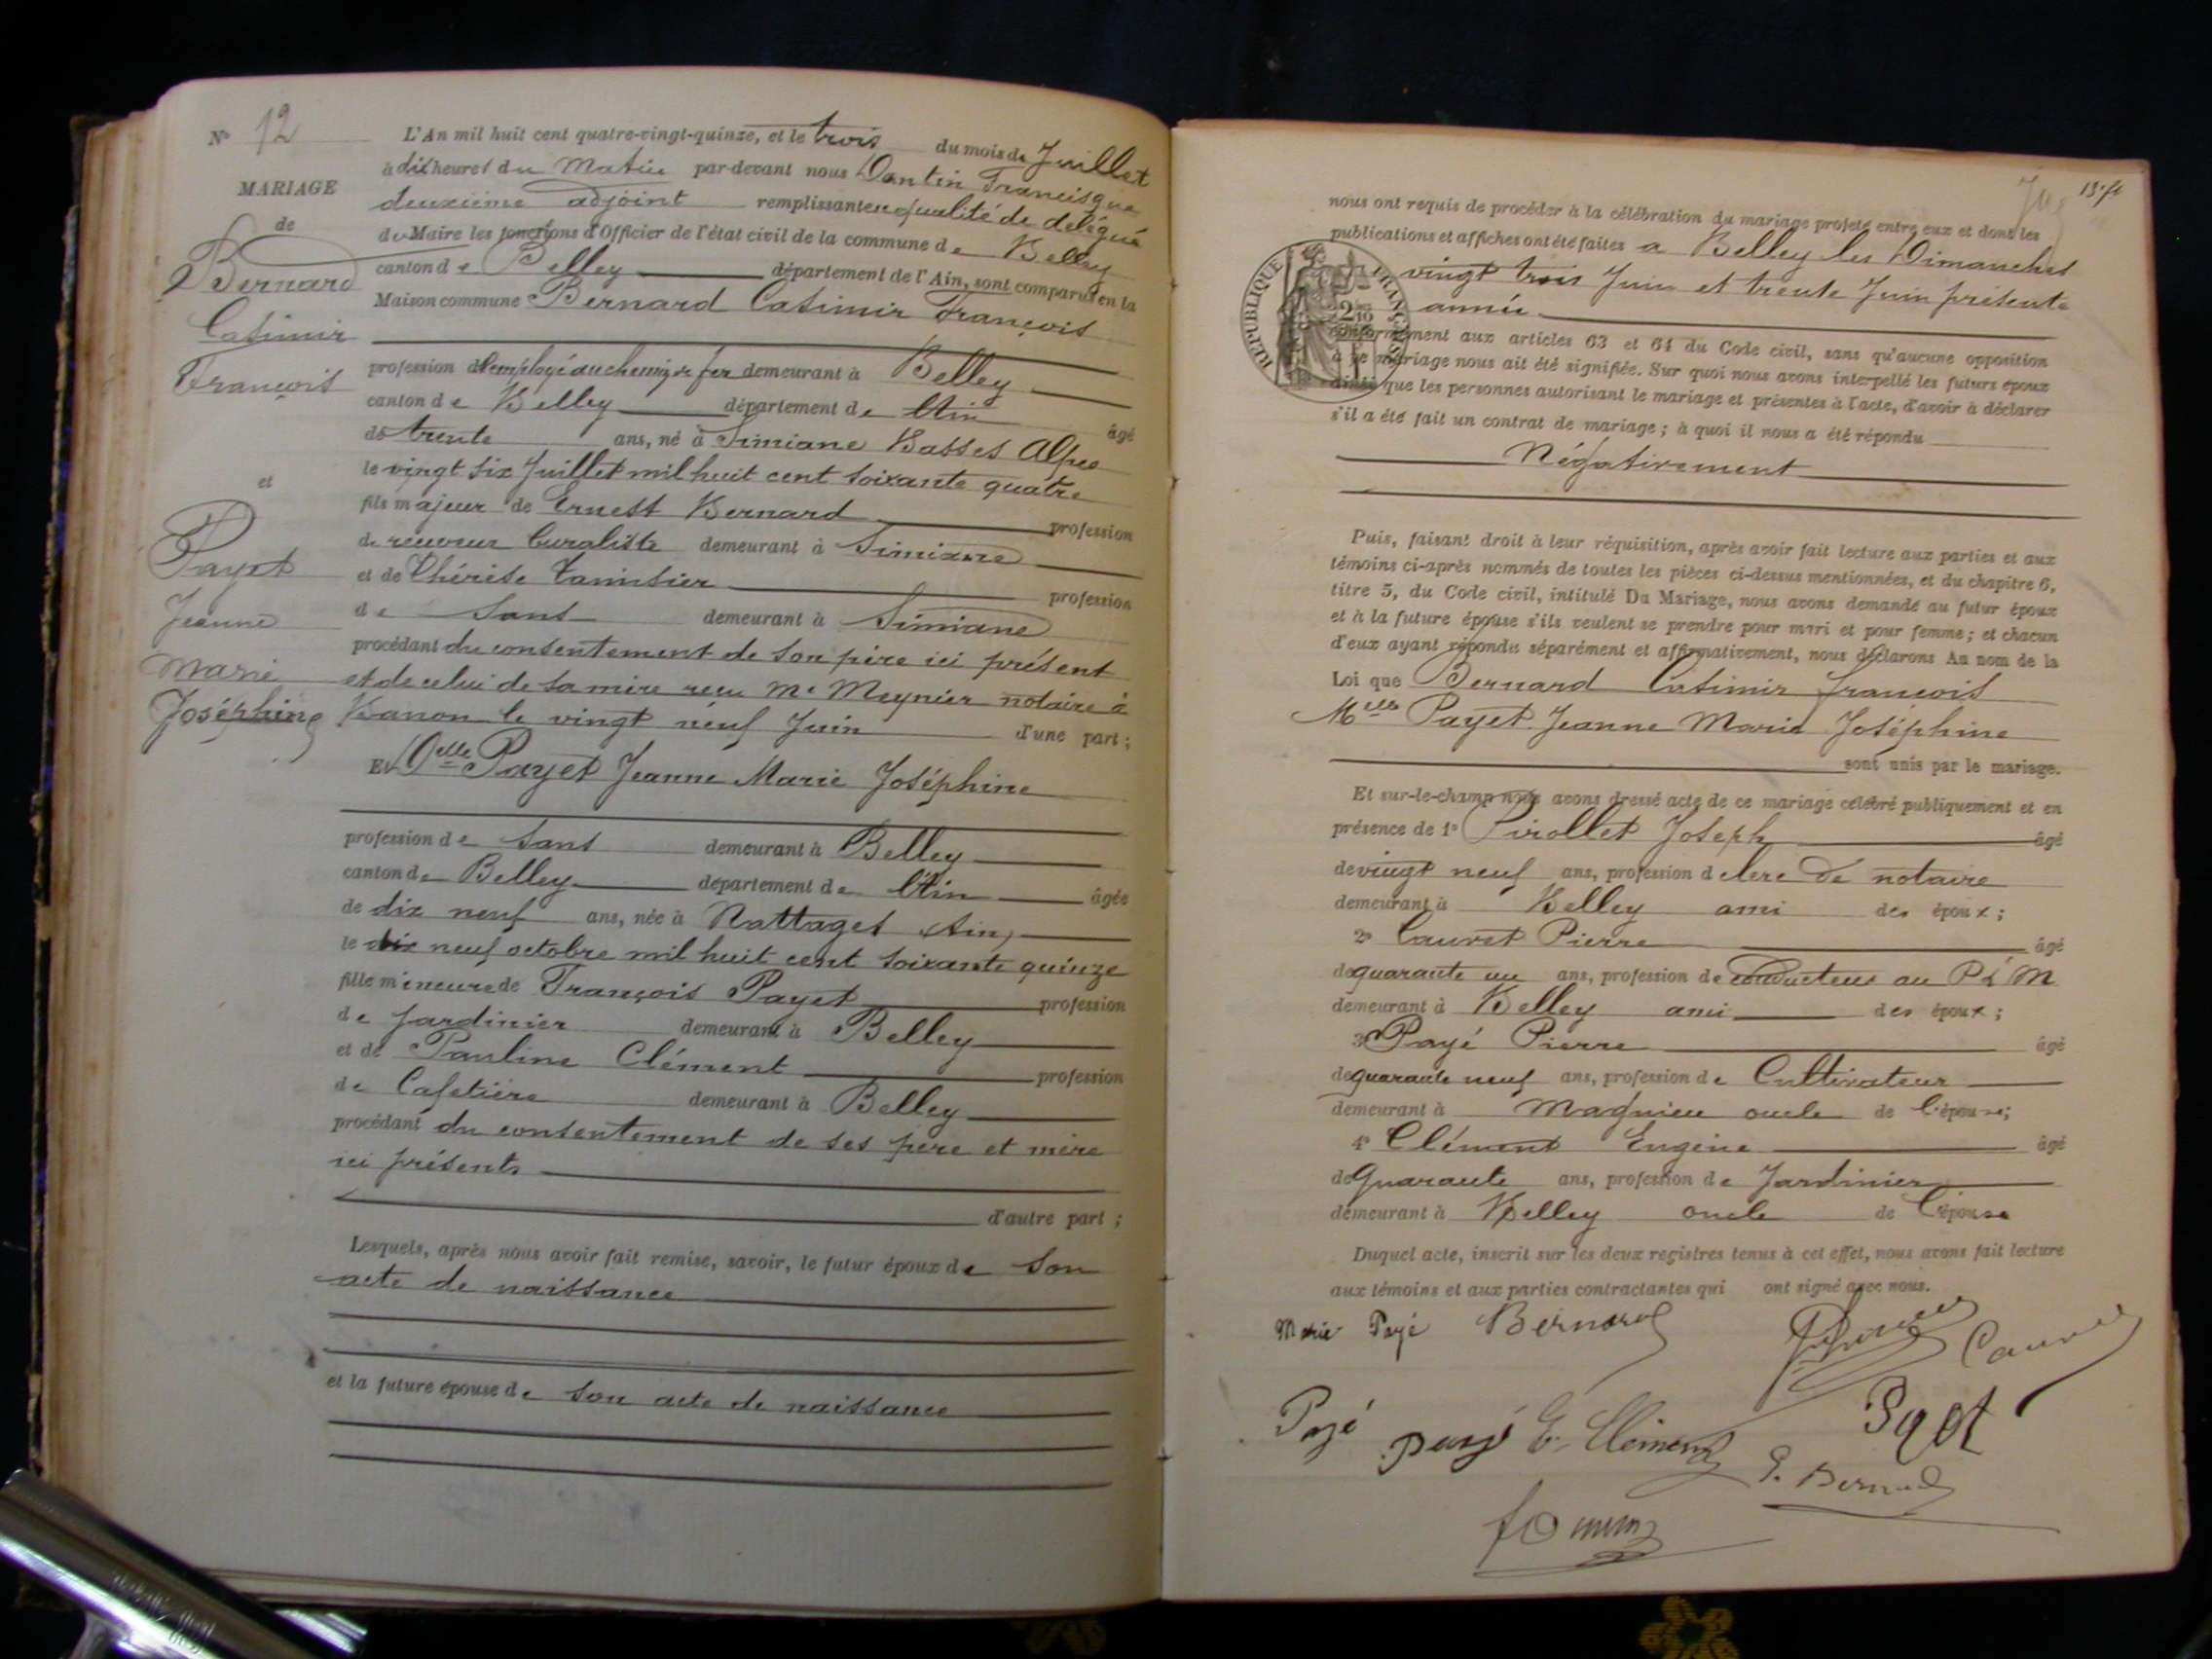 N° 12
MARIAGE
de
Bernard
Casimir
François
et
Payet
Jeanne
Marie
Joséphine
L'An mil huit cent quatre-vingt-quinze, et le trois du mois de Juillet
à dix heures du Matin par-devant nous Dantin Francisque
deuxième adjoint remplissant en qualité de délégué
du Maire les fonctions d'Officier de l'état civil de la commune de Belley
canton de Belley département de l'Ain, sont comparus en la
Maison commune Bernard Casimir François
profession d'employé au chemin de fer demeurant à Belley
canton de Belley département de l'Ain âgé
de trente ans, né à Simiane Basses Alpes
le vingt six Juillet mil huit cent soixante quatre
fils majeur de Ernest Bernard profession
de receveur buraliste demeurant à Simiane
et de Thérèse profession
de Sans demeurant à Simiane
procédant du consentement de son père ici présent
et de celui de sa mère reçu Me Meynier notaire à
Banon le vingt neuf Juin d'une part ;
Et Delle Payet Jeanne Marie Joséphine
profession de Sans demeurant à Belley
canton de Belley département de l'Ain âgée
de dix neuf ans, née à Nattages Ain,
le dix neuf octobre mil huit cent soixante quinze
fille mineure de François Payet profession
de Jardinier demeurant à Belley
et de Pauline Clément profession
de Cafetière demeurant à Belley
procédant du consentement de ses père et mère
ici présents
d'autre part ;
Lesquels, après nous avoir fait remise, savoir, le futur époux de son
acte de naissance
et la future épouse de son acte de naissance
nous ont requis de procéder à la célébration du mariage projeté entre eux et dont les
publications et affiches ont été faites a Belley les Dimanches
vingt trois Juin et trente Juin présente
année
RÉPUBLIQUE FRANÇAISE
conformément aux articles 63 et 64 du Code civil, sans qu'aucune opposition
à ce mariage nous ait été signifiée. Sur quoi nous avons interpellé les futurs époux
ainsi que les personnes autorisant le mariage et présentes à l'acte, d'avoir à déclarer
s'il a été fait un contrat de mariage ; à quoi il nous a été répondu
Négativement
Puis, faisant droit à leur réquisition, après avoir fait lecture aux parties et aux
témoins ci-après nommés de toutes les pièces ci-dessus mentionnées, et du chapitre 6,
titre 5, du Code civil, intitulé Du Mariage, nous avons demandé au futur époux
et à la future épouse s'ils veulent se prendre pour mari et pour femme ; et chacun
d'eux ayant répondu séparément et affirmativement, nous déclarons Au nom de la
Loi que Bernard Casimir François
Melle Payet Jeanne Marie Joséphine
sont unis par le mariage.
Et sur-le-champ nous avons dressé acte de ce mariage célébré publiquement et en
présence de 1° Pirollet Joseph âgé
de vingt neuf ans, profession d clerc de notaire
demeurant à Belley ami des époux ;
2° Cauvet Pierre âgé
de quarante un ans, profession de conducteur au P L M
demeurant à Belley ami des époux ;
3° Payé Pierre âgé
de quarante neuf ans, profession de Cultivateur
demeurant à Magnieu oncle de l'épouse;
4° Clément Eugène âgé
de Quarante ans, profession de Jardinier
demeurant à Belley oncle de l'épouse
Duquel acte, inscrit sur les deux registres tenus à cet effet, nous avons fait lecture
aux témoins et aux parties contractantes qui ont signé avec nous.
Marie Payé Bernard
Payé E. Clément
E. Bernard